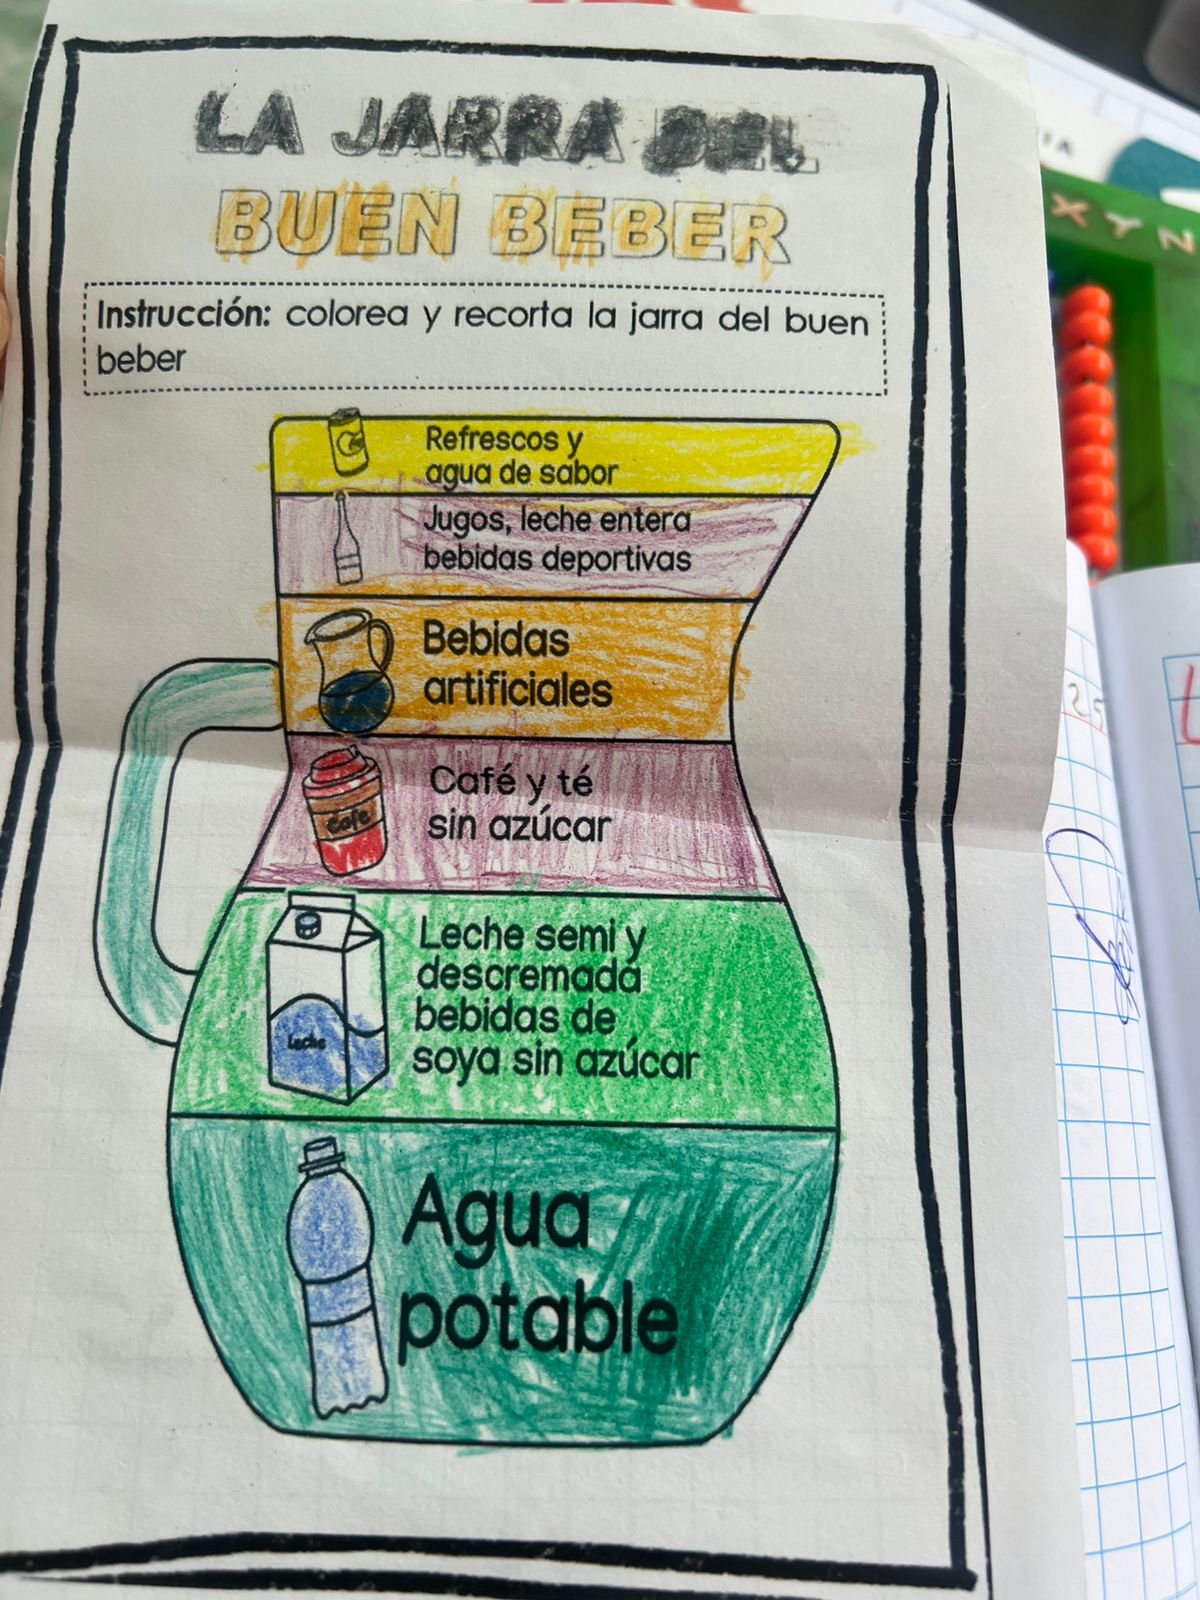 LA JARRA DEL
BUEN BEBER
Instrucción: colorea y recorta la jarra del buen
beber
Refrescos y
agua de sabor
Jugos, leche entera
bebidas deportivas
Bebidas
artificiales
Café y té
sin azúcar
Café
Leche semi y
descremada
bebidas de
soya sin azúcar
Leche
Agua
potable
X Y N
25